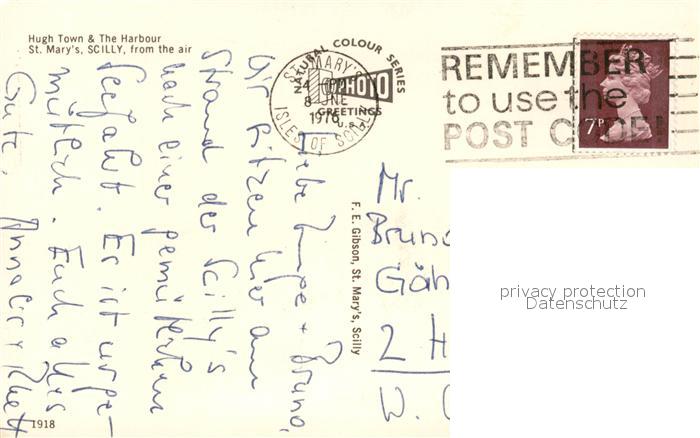 Hugh Town & The Harbour
St. Mary's, SCILLY, from the air
NATURAL COLOUR SERIES
PHOTO
GREETINGS
ST. MARY'S
24
8 JNE
1976
ISLES OF SCILLY
REMEMBER
to use the
POST CODE!
7P
F. E. Gibson, St. Mary's, Scilly
Liebe Inge + Bruno,
wir sitzen hier am
Strand der Scilly's
nach einer gemütlichen
Seefahrt. Es ist urge-
mütlich. Euch alles
Gute,
Mr.
Bruno
Gäh
2 H
privacy protection
Datenschutz
1918